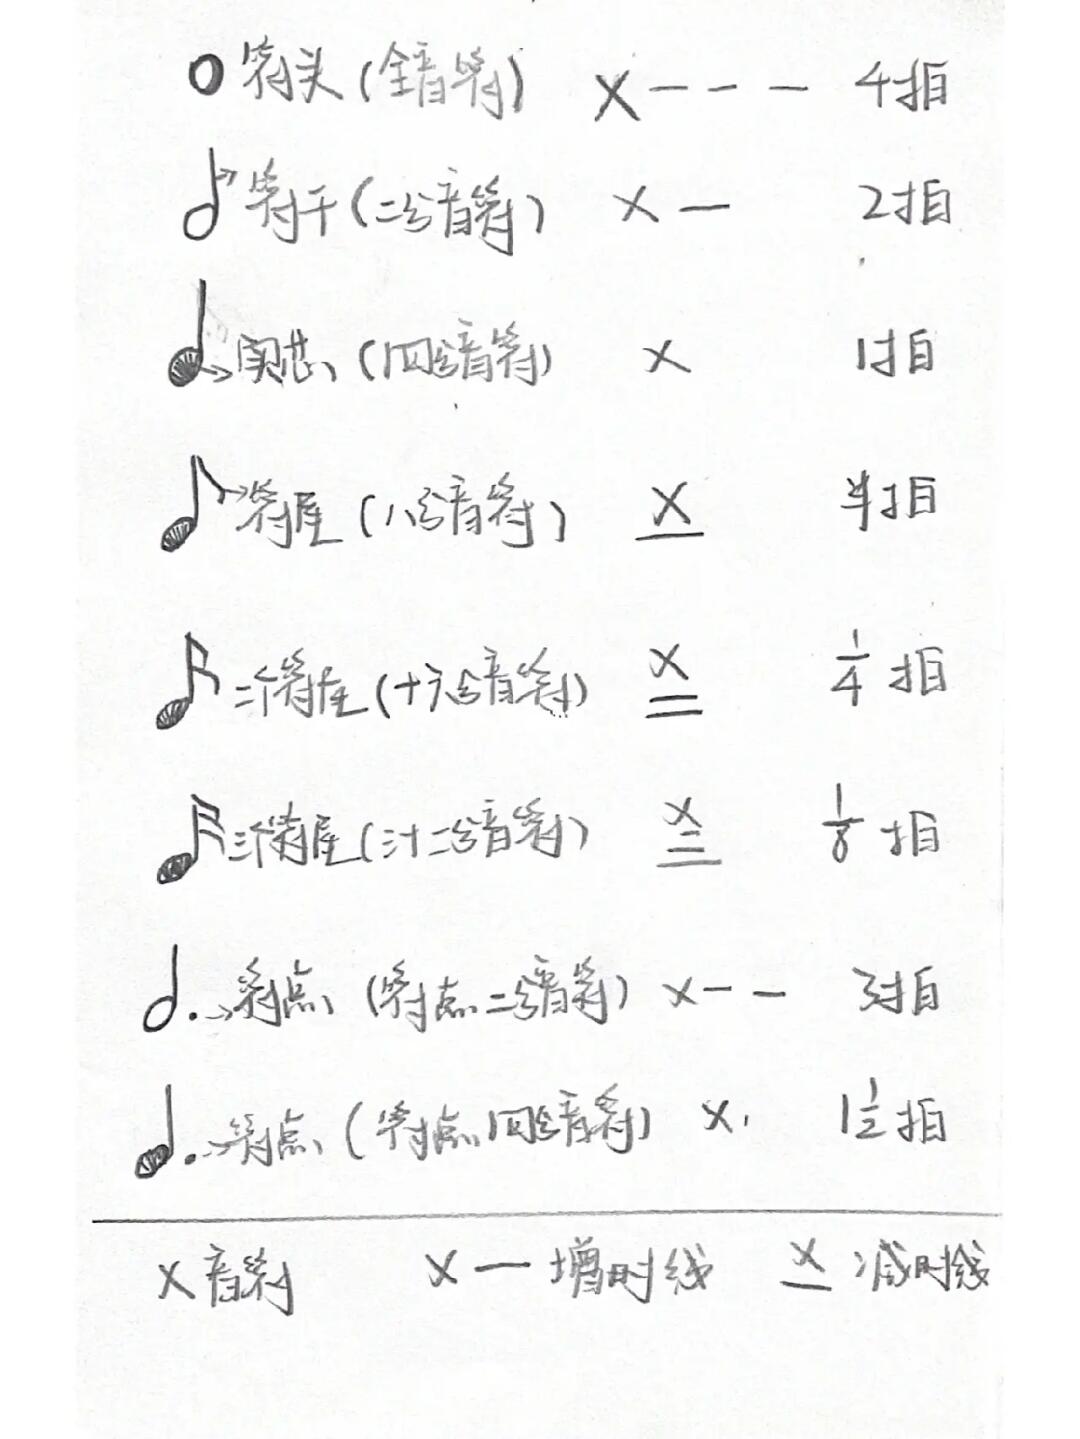 符头(全音符) X - - - 4拍
符干(二分音符) X - 2拍
实芯(四分音符) X 1拍
符尾(八分音符) X 半拍
二个符尾(十六分音符) X 1/4 拍
三个符尾(三十二分音符) X 1/8 拍
符点(符点二分音符) X - - 3拍
符点(符点四分音符) X. 1 1/2 拍
X 音符 X - 增时线 X 减时线